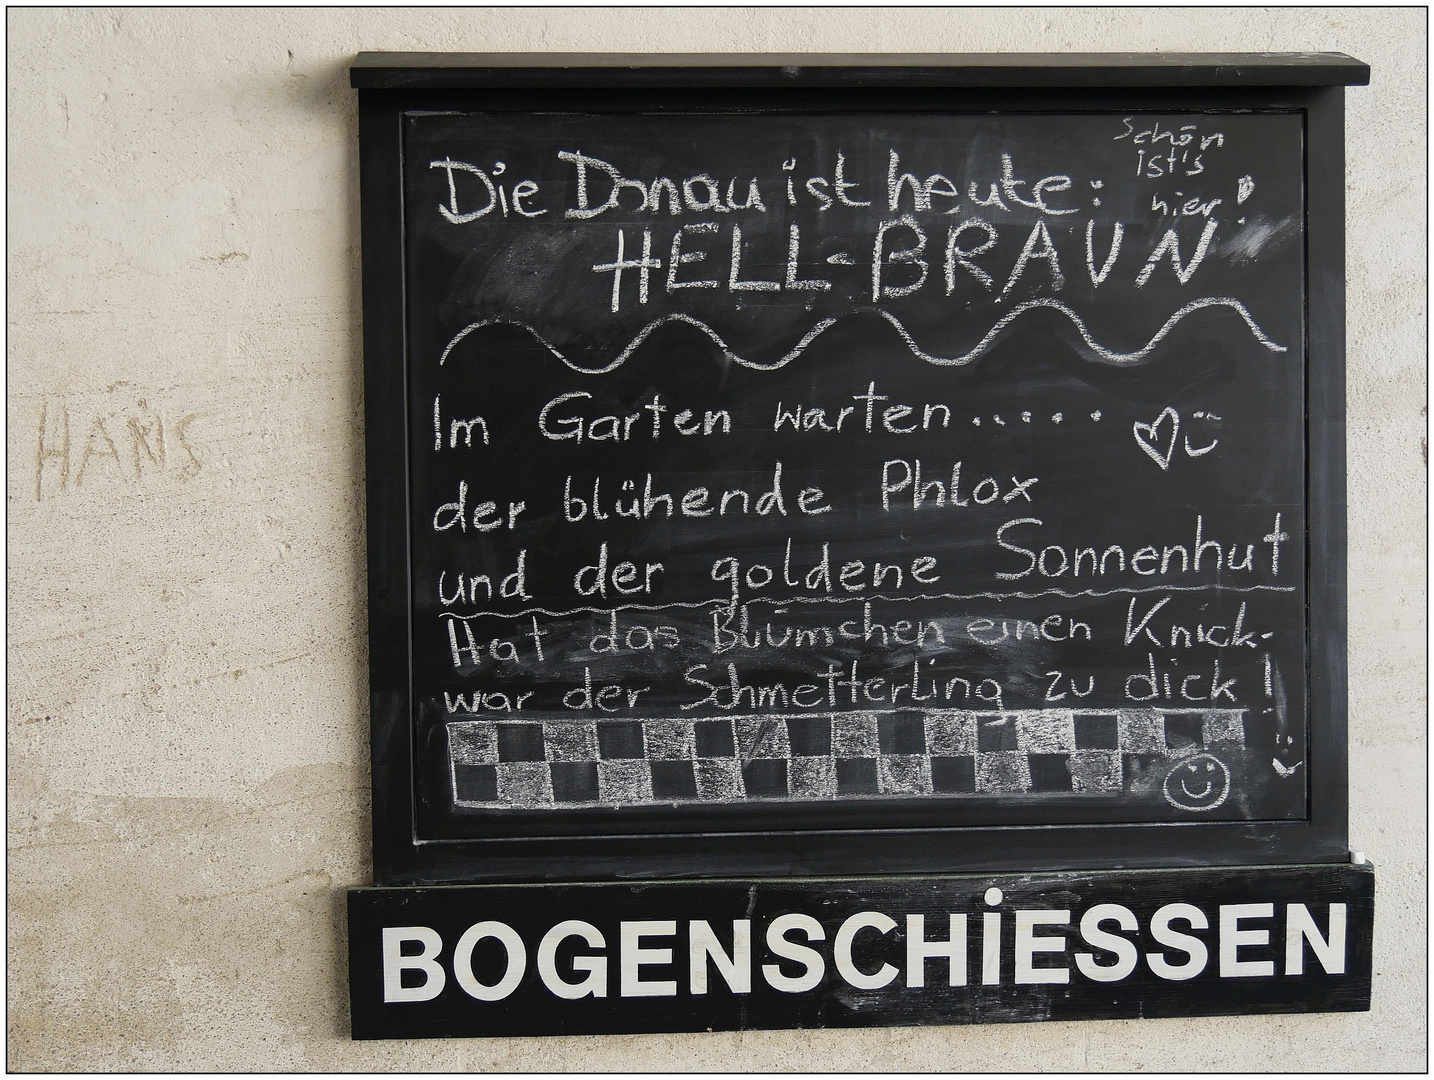 Schön
ist's
hier!
Die Donau ist heute:
HELL-BRAUN
Im Garten warten......
der blühende Phlox
und der goldene Sonnenhut
Hat das Blümchen einen Knick-
war der Schmetterling zu dick!
BOGENSCHiESSEN
HANS